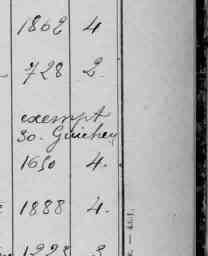 1862 4
728 2
exempt
30. Guichey
1650 4.
1888 4.